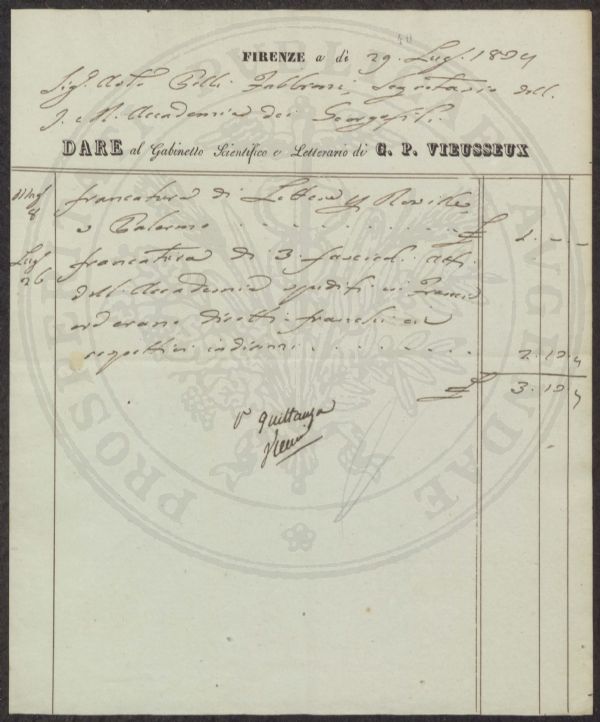 40
FIRENZE a dì 29. Lug. 1834
Sig. Pelli Fabbroni, Segretario dell.
I. e R. Accademia dei Georgofili.
DARE al Gabinetto Scientifico e Letterario di G. P. VIEUSSEUX
8 francatura di Lettera
a Palermo . . . . . . . . £ 1. — —
Lug.
26 francatura di 3. fascicoli atti
dell'Accademia spediti in Francia
diretti franchi ai
respettivi indirizzi . . . . . . . 2. 10. 4
£ 3. 10. 4
p quittanza
PROSPERITATI PUBLICAE AUGENDAE